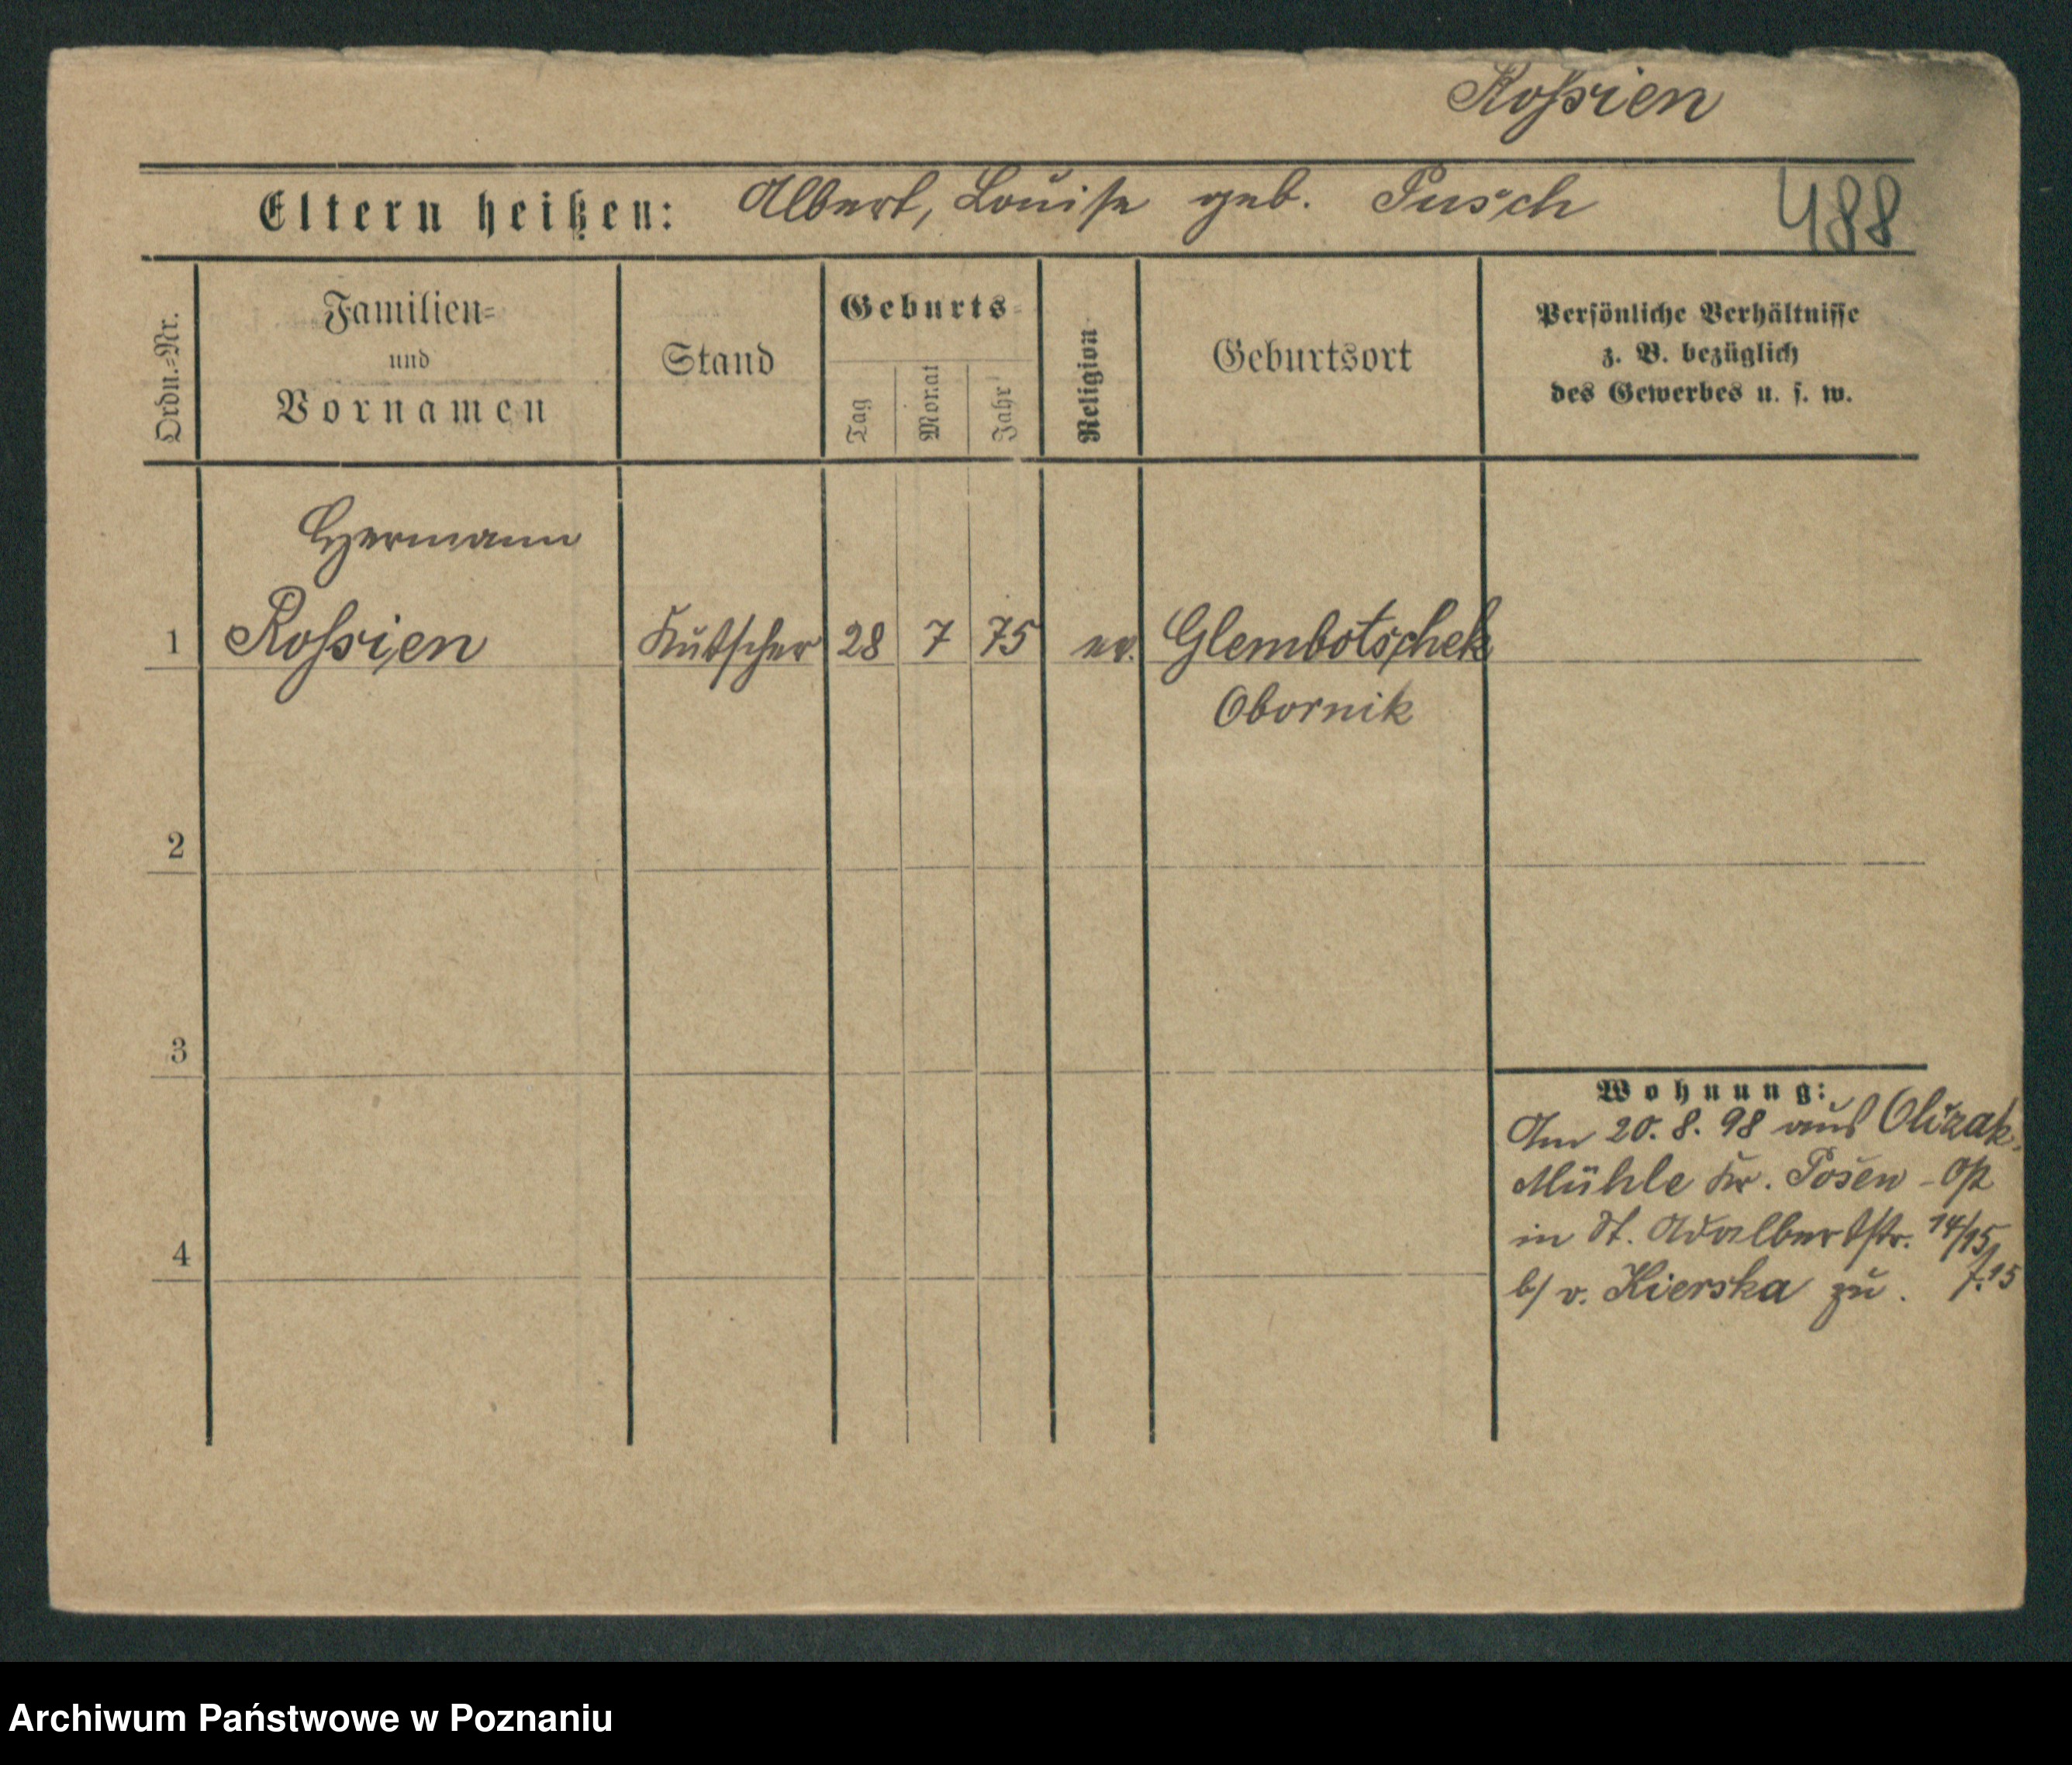 Roßsien
Eltern heißen: Albert, Louise geb. Pusch
488
Ordn.=Nr.
Familien=
und
Vornamen
Stand
Geburts=
Tag
Monat
Jahr
Religion
Geburtsort
Persönliche Verhältnisse
z. B. bezüglich
des Gewerbes u. s. w.
Hermann
1 Roßsien Kutscher 28 7 75 ev. Glembotschek
Obornik
2
3
4
Wohnung:
Am 20. 8. 98 aus
Mühle Kr. Posen - Ost
in St. Adalbertstr. 14/15
b/ v. Kierska zu.
Archiwum Państwowe w Poznaniu